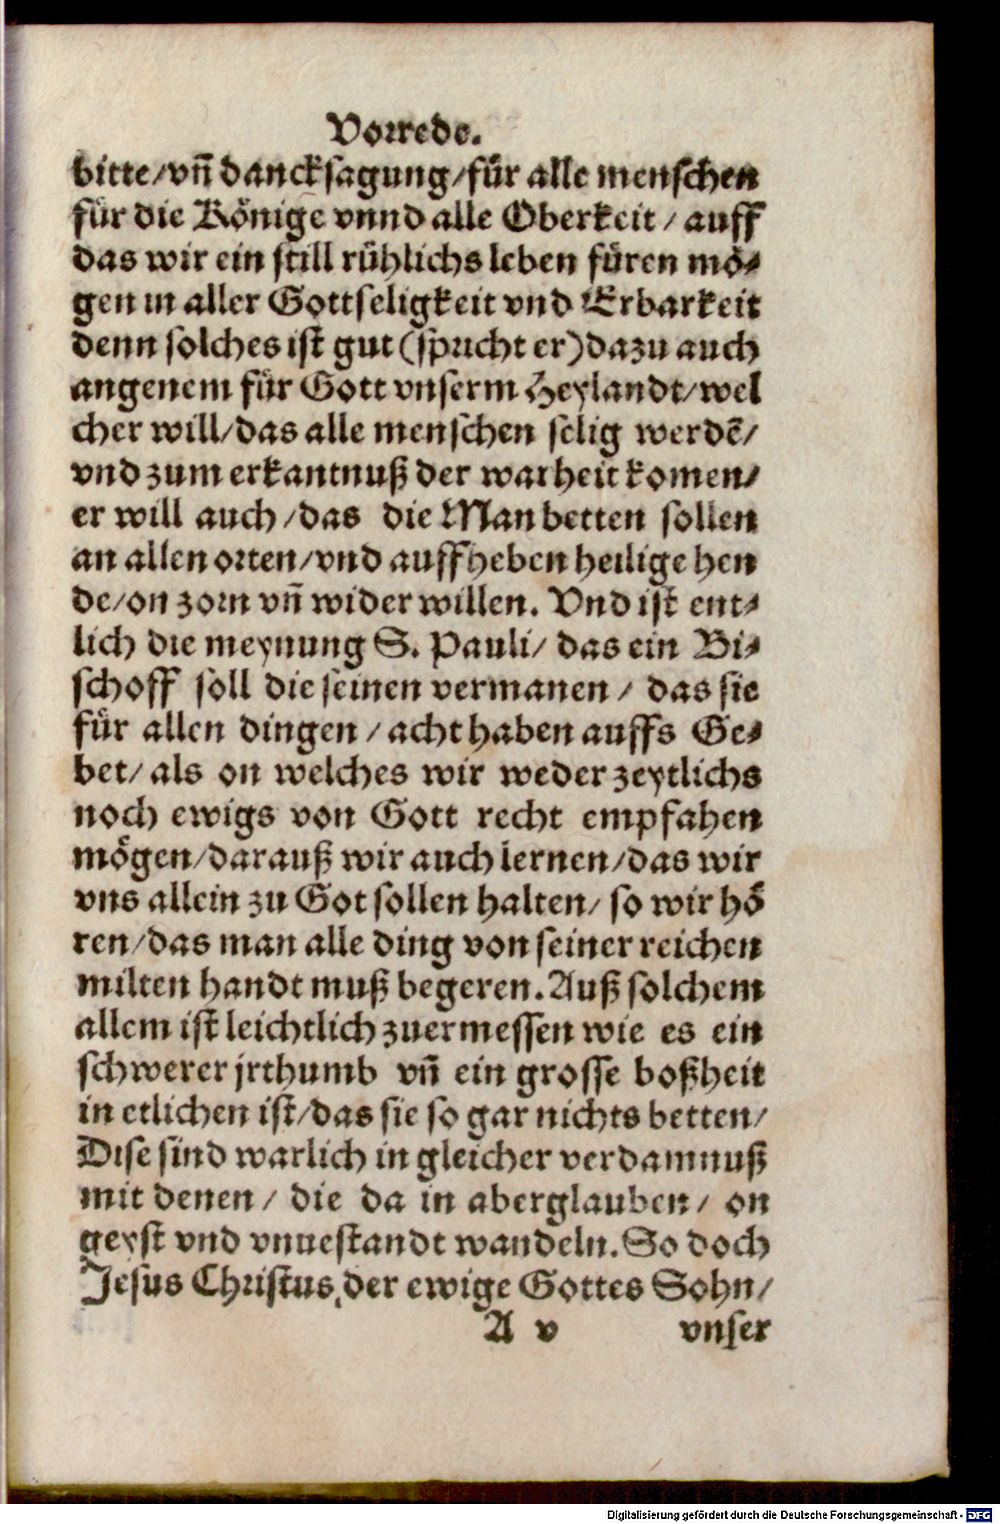 Vorrede.
bitte/vñ dancksagung/für alle menschen
für die Könige vnnd alle Oberkeit / auff
das wir ein still rühlichs leben füren mö⸗
gen in aller Gottseligkeit vnd Erbarkeit
denn solches ist gut (spricht er) dazu auch
angenem für Gott vnserm Heylandt/wel
cher will/das alle menschen selig werdē/
vnd zum erkantnuß der warheit komen/
er will auch /das die Man betten sollen
an allen orten/vnd auffheben heilige hen
de/on zorn vñ wider willen. Vnd ist ent⸗
lich die meynung S. Pauli/ das ein Bi⸗
schoff soll die seinen vermanen / das sie
für allen dingen / acht haben auffs Ge⸗
bet/ als on welches wir weder zeytlichs
noch ewigs von Gott recht empfahen
mögen/darauß wir auch lernen/das wir
vns allein zu Got sollen halten/ so wir hö
ren/das man alle ding von seiner reichen
milten handt muß begeren. Auß solchem
allem ist leichtlich zuermessen wie es ein
schwerer jrthumb vñ ein grosse boßheit
in etlichen ist/das sie so gar nichts betten/
Dise sind warlich in gleicher verdamnuß
mit denen/ die da in aberglauben/ on
geyst vnd vnuestandt wandeln. So doch
Jesus Christus der ewige Gottes Sohn/
A v vnser
Digitalisierung gefördert durch die Deutsche Forschungsgemeinschaft - DFG